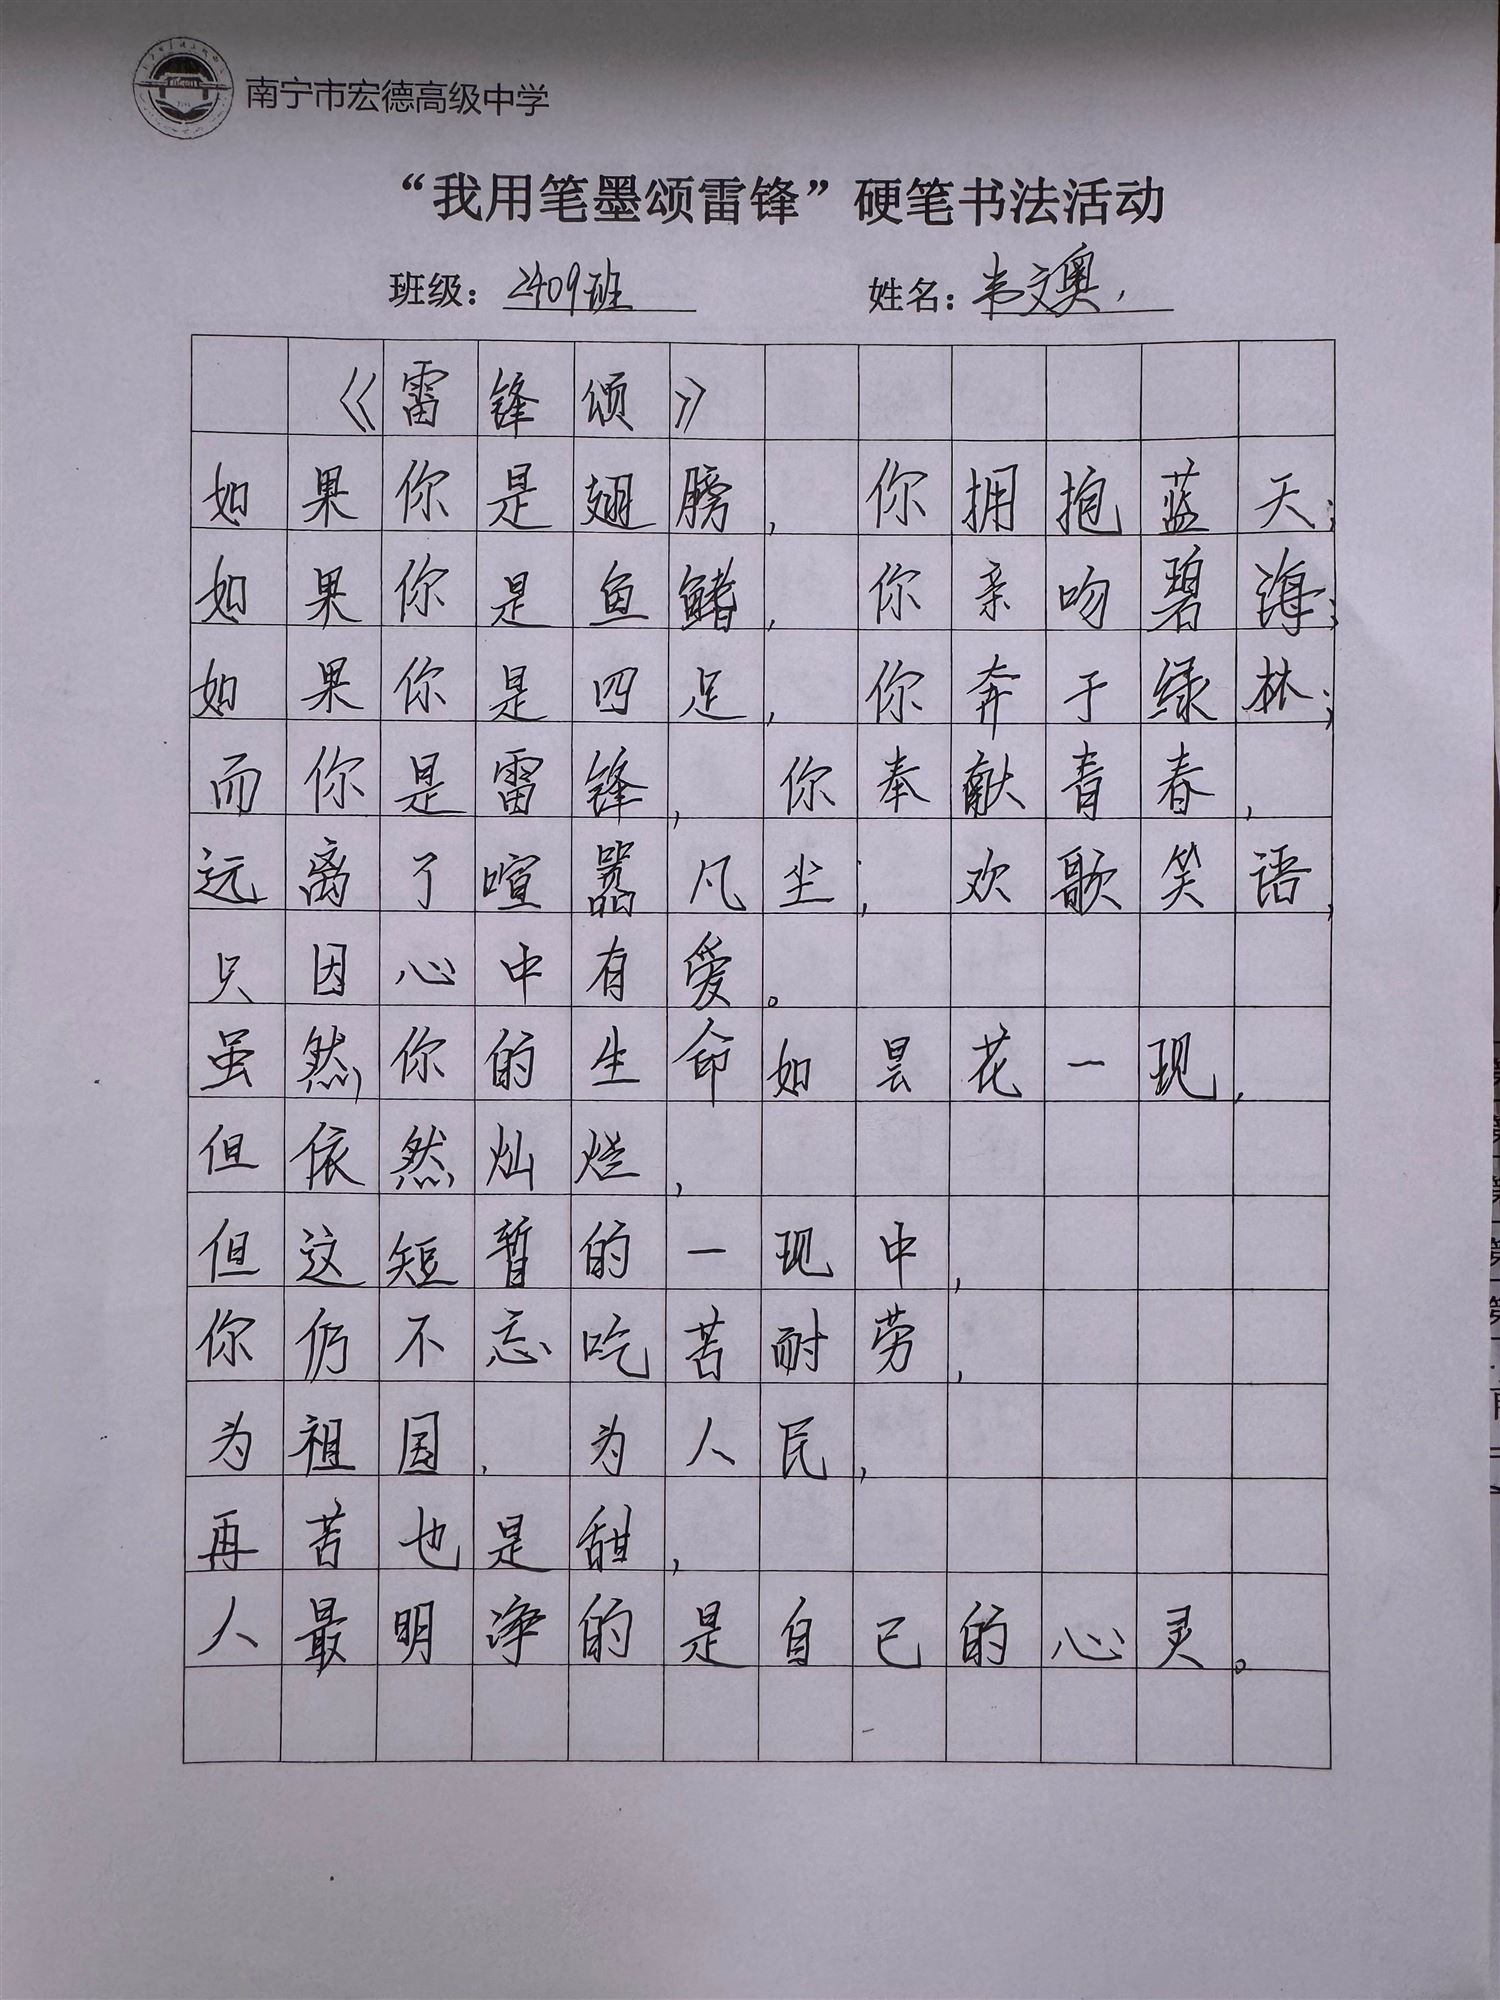 南宁市宏德高级中学
“我用笔墨颂雷锋”硬笔书法活动
班级：2409班 姓名：韦文奥
《雷锋颂》
如果你是翅膀，你拥抱蓝天；
如果你是鱼鳍，你亲吻碧海；
如果你是四足，你奔于绿林；
而你是雷锋，你奉献青春，
远离了喧嚣凡尘；欢歌笑语，
只因心中有爱。
虽然你的生命如昙花一现，
但依然灿烂，
但这短暂的一现中，
你仍不忘吃苦耐劳，
为祖国、为人民，
再苦也是甜，
人最明净的是自己的心灵。